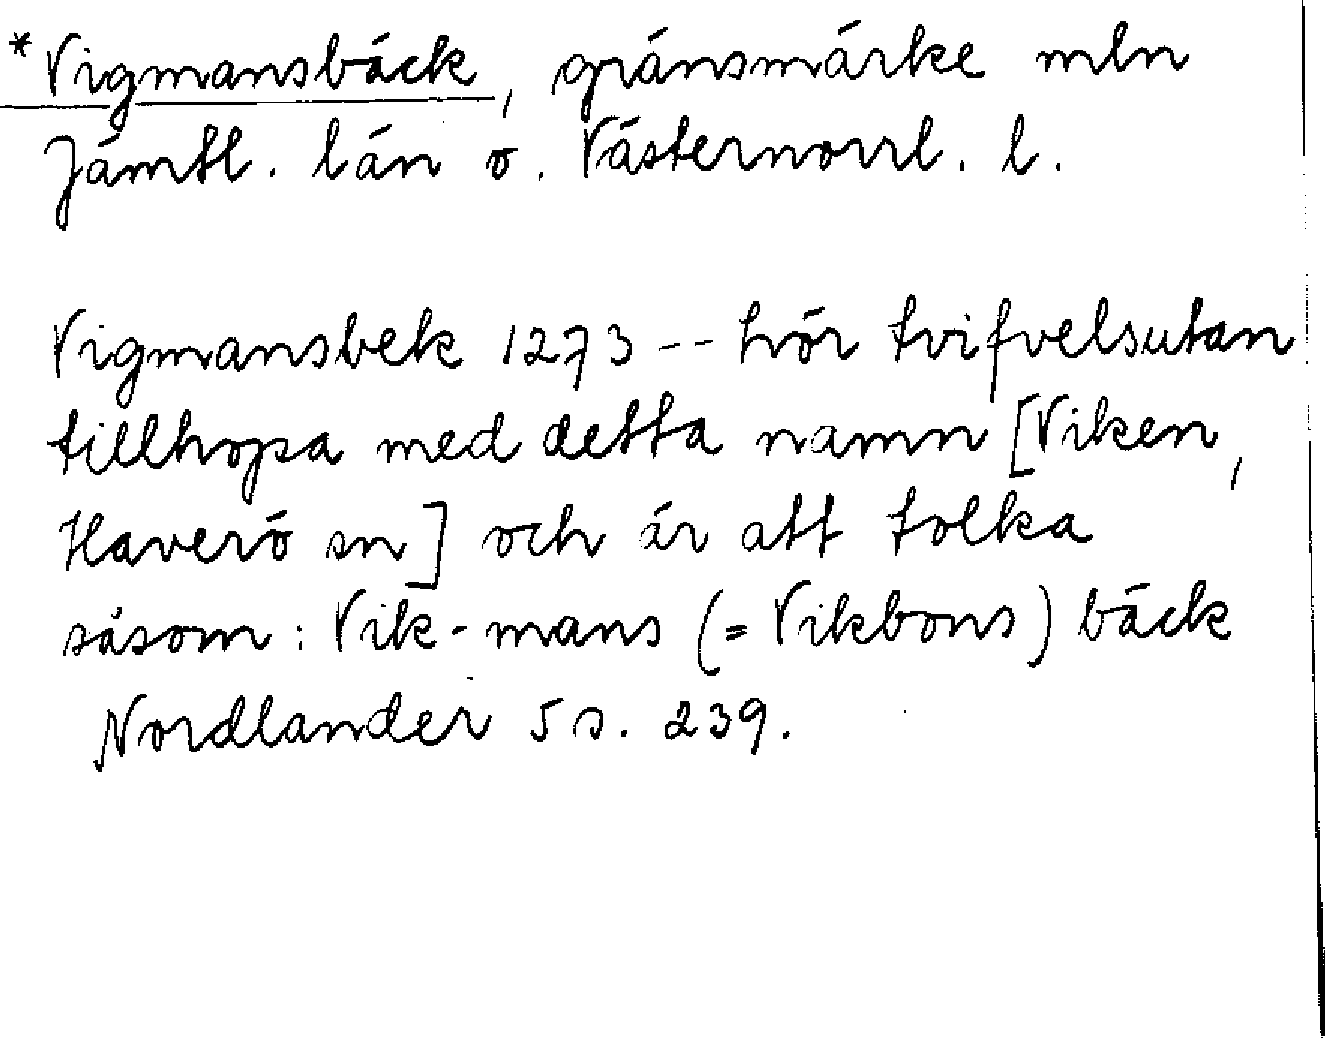 *Vigmansbäck, gränsmärke mln
Jämtl. län o. Västernorrl. l.
Vigmansbek 1273 -- hör tvifvelsutan
tillhopa med detta namn [Viken,
Haverö sn] och är att tolka
såsom: Vik-mans (= Vikbons) bäck
Nordlander 5 s. 239.